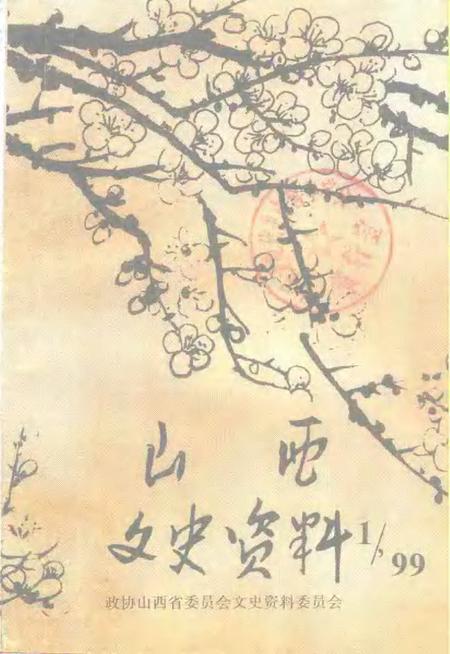 山西
文史资料 1/,99
政协山西省委员会文史资料委员会